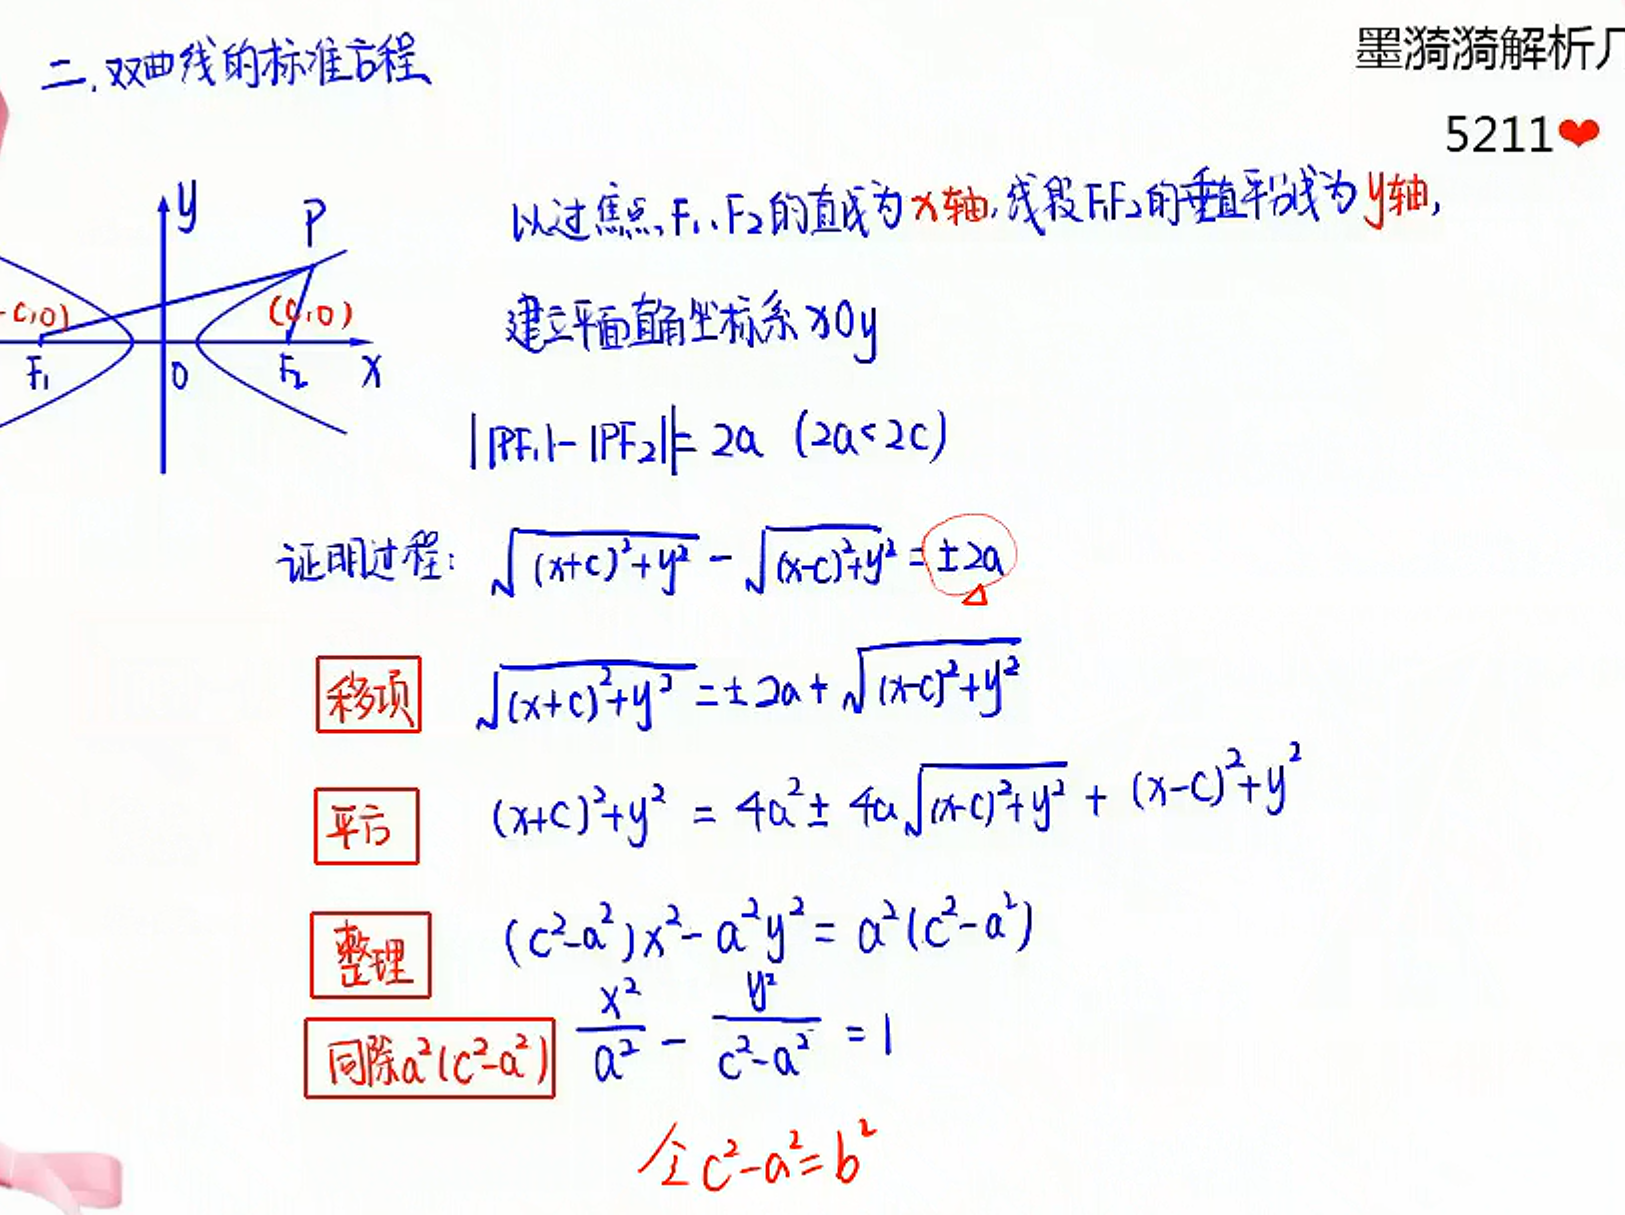 二.双曲线的标准方程
墨漪漪解析几
5211❤
y
P
-c,0)
(c,0)
F₁
O
F₂
x
以过焦点F₁、F₂的直线为x轴,线段F₁F₂的垂直平分线为y轴,
建立平面直角坐标系xOy
||PF₁|-|PF₂||=2a (2a<2c)
证明过程: √((x+c)²+y²) - √((x-c)²+y²) = ±2a
移项 √((x+c)²+y²) = ±2a + √((x-c)²+y²)
平方 (x+c)²+y² = 4a² ± 4a√((x-c)²+y²) + (x-c)²+y²
整理 (c²-a²)x² - a²y² = a²(c²-a²)
同除a²(c²-a²) x²/a² - y²/(c²-a²) = 1
令c²-a²=b²